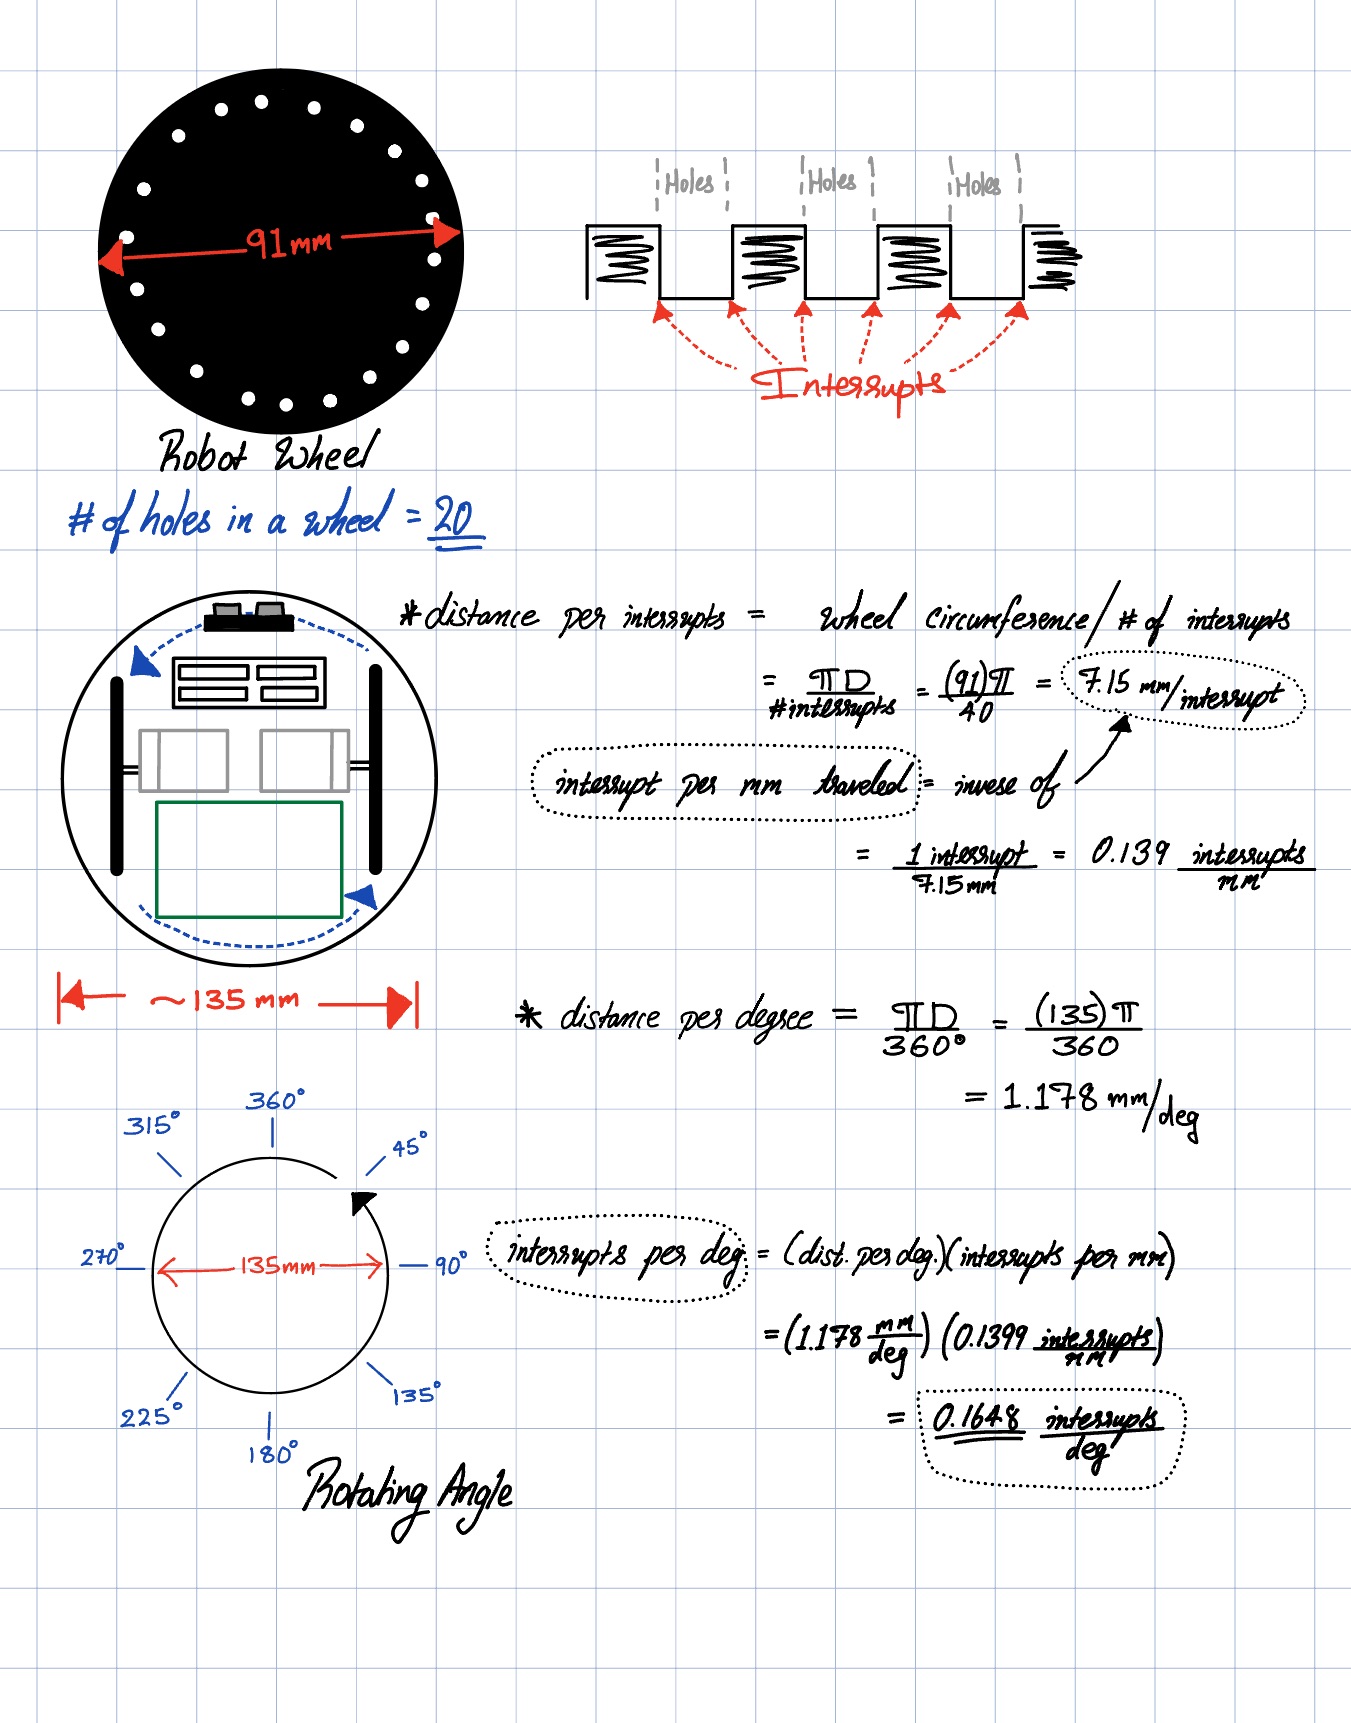 91 mm
Robot Wheel
# of holes in a wheel = 20
Holes Holes Holes
Interrupts
* distance per interrupts = wheel circumference / # of interrupts
= πD / #interrupts = (91)π / 40 = 7.15 mm/interrupt
interrupt per mm traveled = invese of
= 1 interrupt / 7.15 mm = 0.139 interrupts / mm
~135 mm
* distance per degree = πD / 360° = (135)π / 360
= 1.178 mm/deg
360°
315°
45°
270°
135mm
90°
225°
135°
180°
Rotating Angle
interrupts per deg = (dist. per deg.)(interrupts per mm)
= (1.178 mm/deg) (0.1399 interrupts/mm)
= 0.1648 interrupts / deg